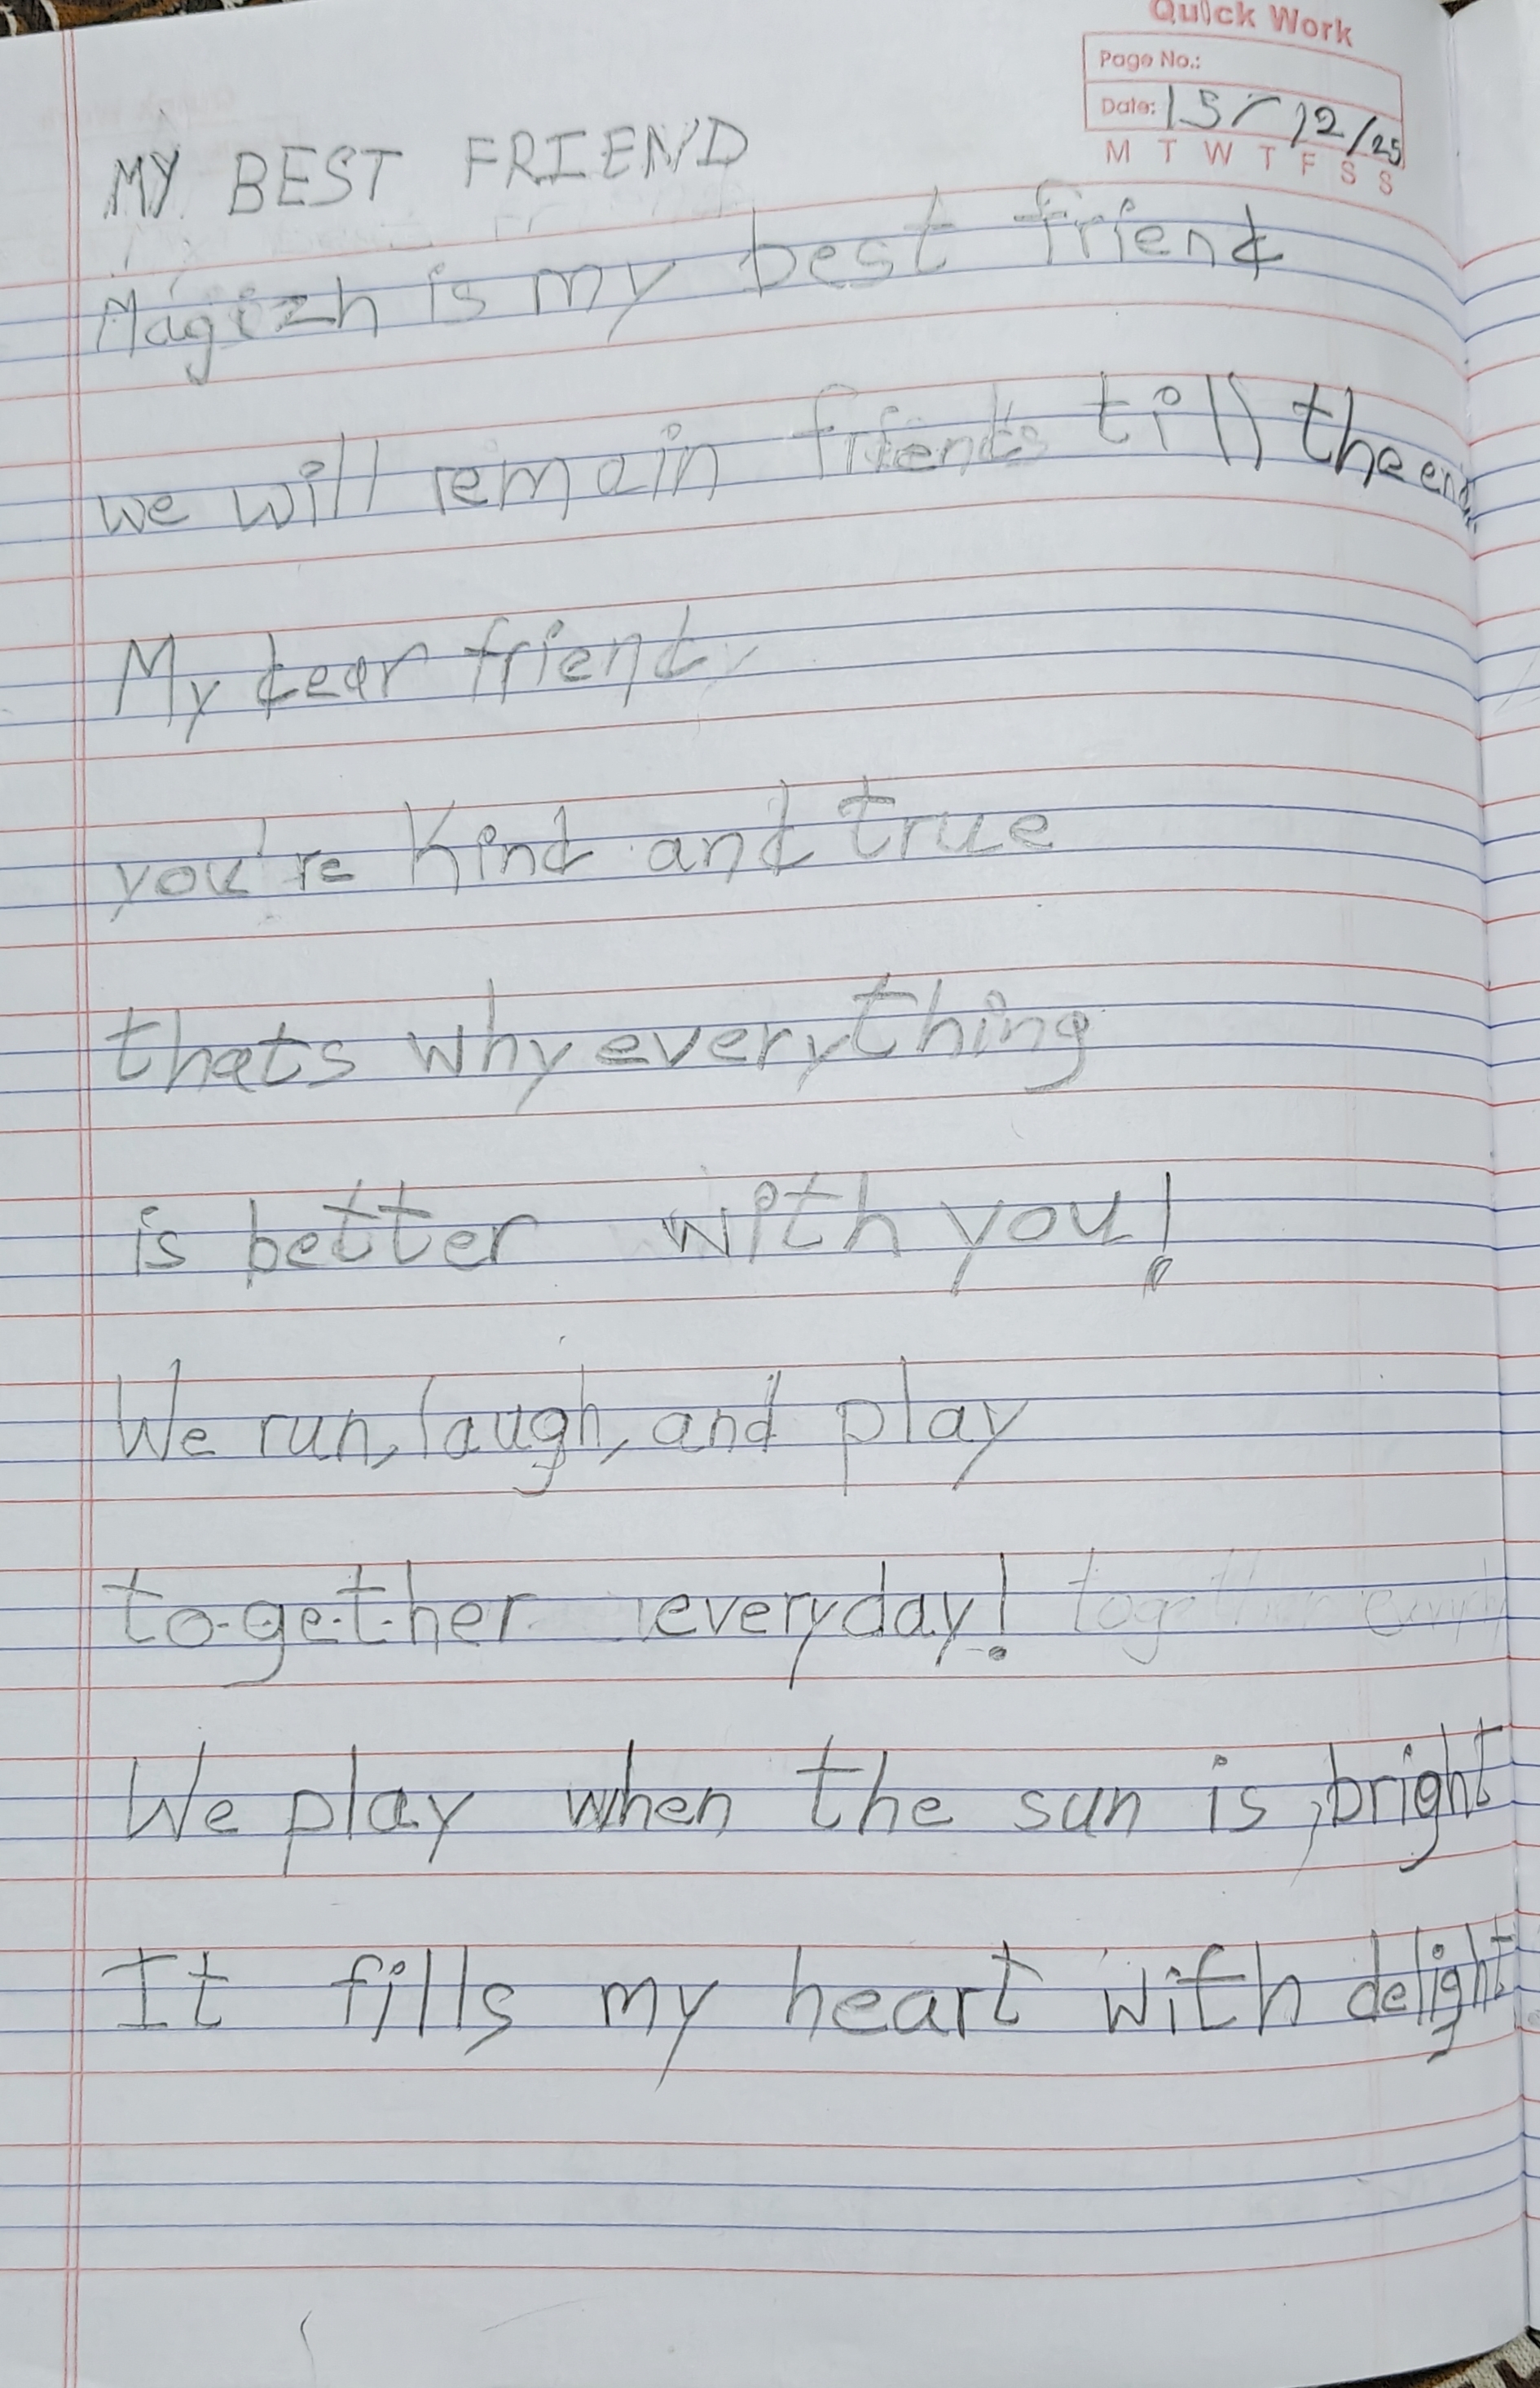 Quick Work
Page No.:
Date: 15/12/25
M T W T F S S
MY BEST FRIEND
Magizh is my best friend
we will remain friends till the end
My dear friend,
you're Kind and true
thats why everything
is better with you!
We run, laugh, and play
to-ge-t-her everyday! together every
We play when the sun is bright
It fills my heart with delight